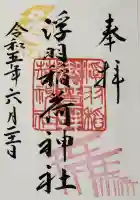 奉拝
浮羽稲荷神社
令和五年六月三日